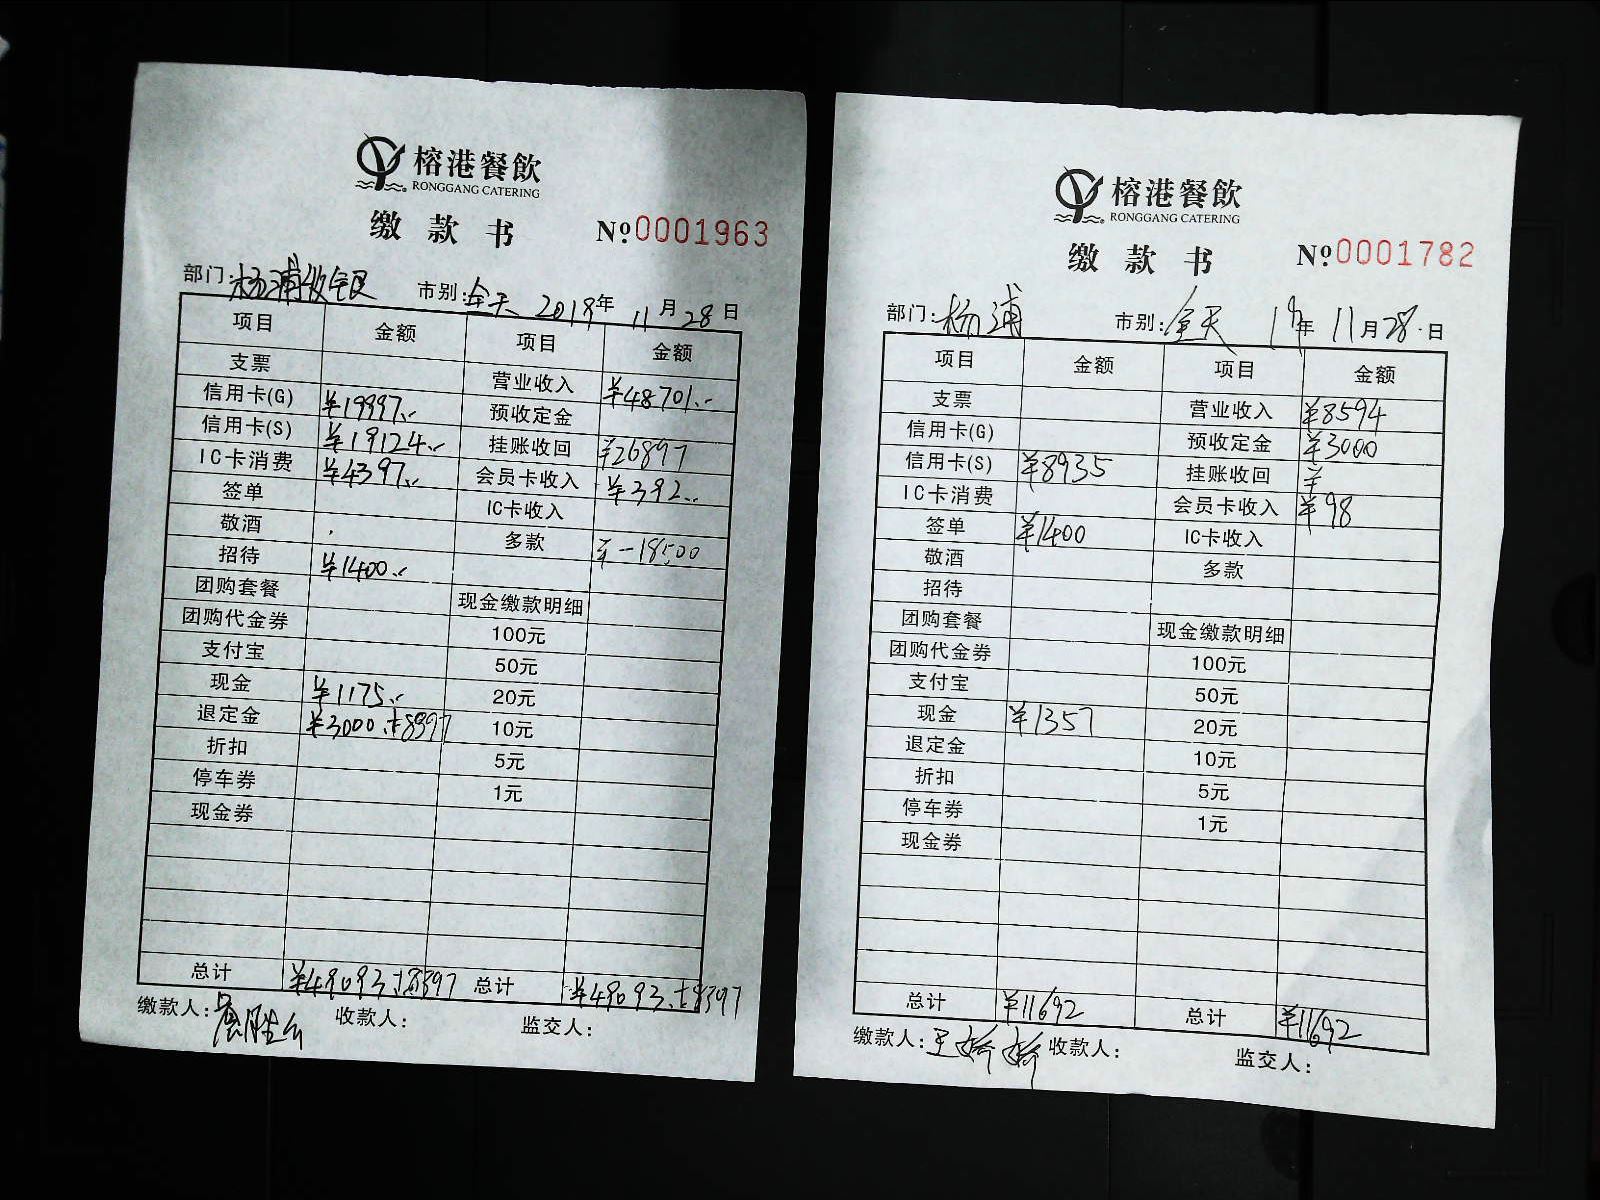 榕港餐飲
RONGGANG CATERING
缴款书 № 0001963
部门: 杨浦收银 市别: 全天 2019年 11月 28日
项目 金额 项目 金额
支票 营业收入 ¥48701.-
信用卡(G) ¥19997.- 预收定金
信用卡(S) ¥19124.- 挂账收回 ¥26897
IC卡消费 ¥4397.- 会员卡收入 ¥392.-
签单 IC卡收入
敬酒 多款 ¥-18500
招待 ¥1400.-
团购套餐 现金缴款明细
团购代金券 100元
支付宝 50元
现金 ¥1175.- 20元
退定金 ¥3000.+8397 10元
折扣 5元
停车券 1元
现金券
总计 ¥49093.+8397 总计 ¥49093.+8397
缴款人: 收款人: 监交人:
榕港餐飲
RONGGANG CATERING
缴款书 № 0001782
部门: 杨浦 市别: 全天 19年 11月 28日
项目 金额 项目 金额
支票 营业收入 ¥8594
信用卡(G) 预收定金 ¥3000
信用卡(S) ¥8935 挂账收回 ¥
IC卡消费 会员卡收入 ¥98
签单 ¥1400 IC卡收入
敬酒 多款
招待
团购套餐 现金缴款明细
团购代金券 100元
支付宝 50元
现金 ¥1357 20元
退定金 10元
折扣 5元
停车券 1元
现金券
总计 ¥11692 总计 ¥11692
缴款人: 王娇娇 收款人: 监交人: